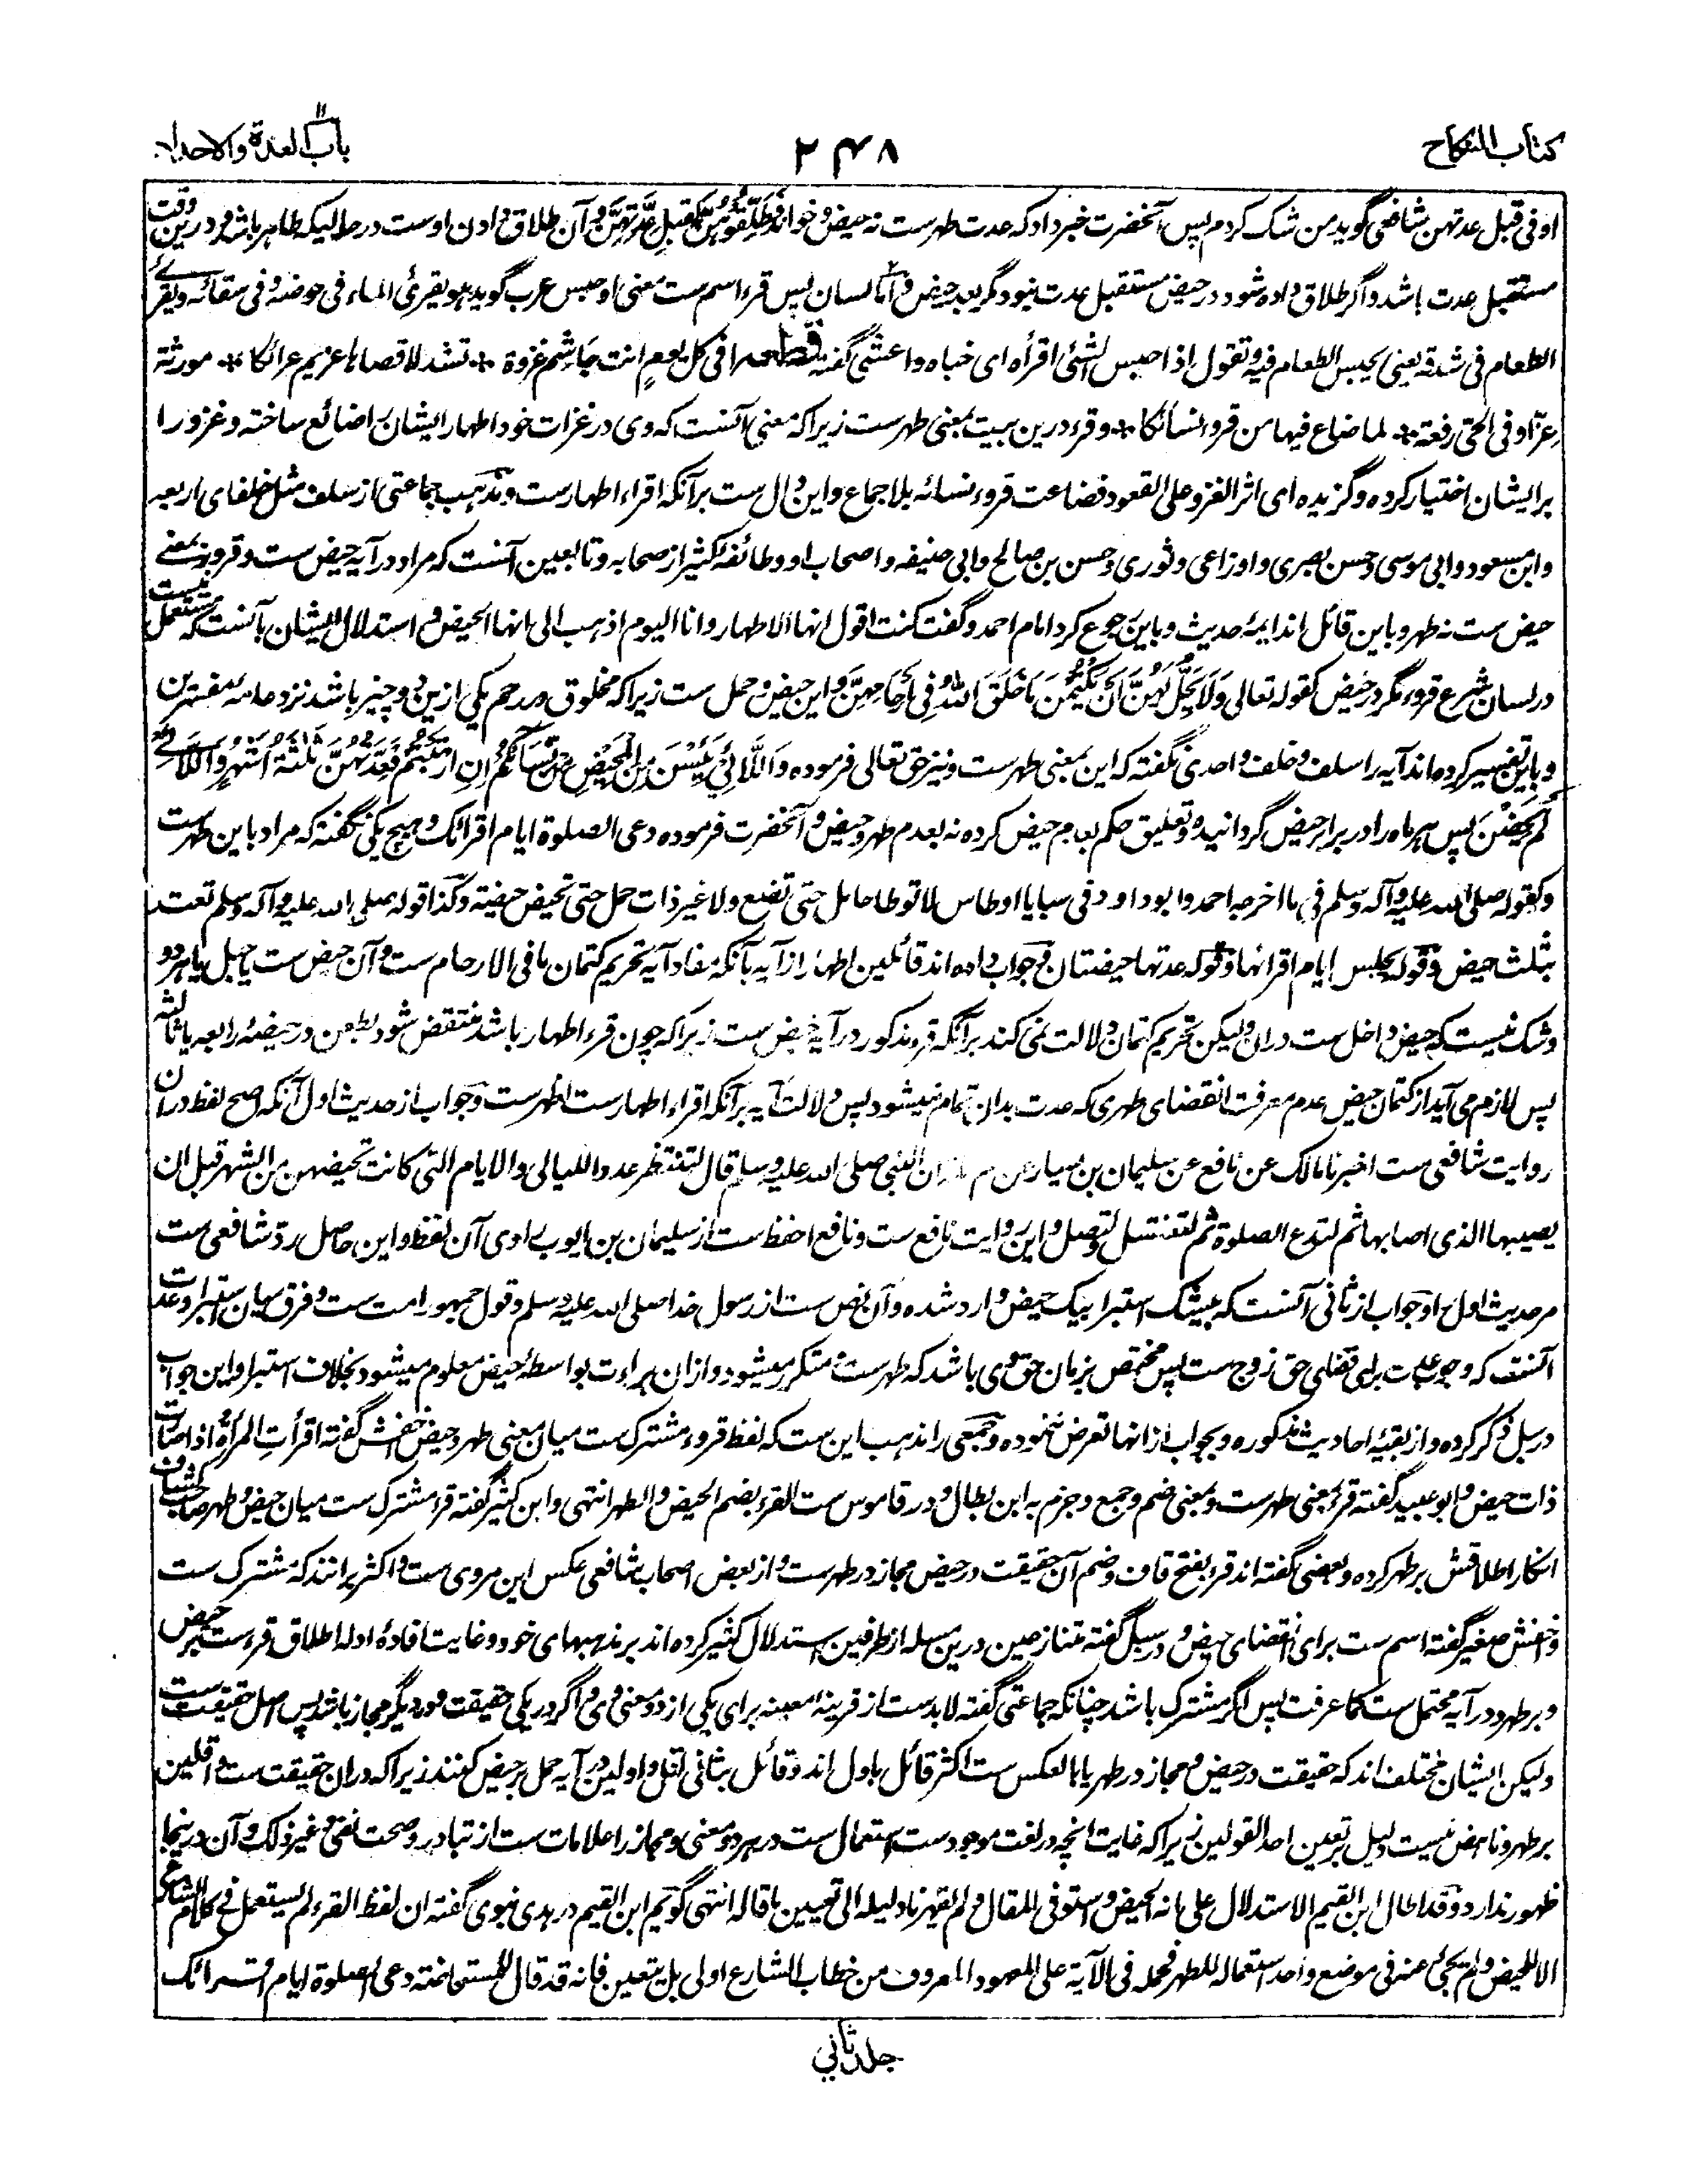 كتاب النكاح
۲۴۸
باب العدة والاحداد
او فی قبل عدتهن شافعی گوید من شک کردم پس آنحضرت خبر داد که عدت طهرست نه حیض و خواند فَطَلِّقُوهُنَّ لِقُبُلِ عِدَّتِهِنَّ و آن طلاق دادن اوست در حالیکه طاهر باشد و درین وقت
مستقبل عدت باشد و اگر طلاق داده شود در حیض مستقبل عدت نبود مگر بعد حیض و اما لسان پس قرء اسم ست معنی او حبس عرب گوید هو یقرئ الماء فی حوضه و فی سقائه و یقرئ
الطعام فی شدقه یعنی یحبس الطعام فیه و تقول اذا حبس الشئ اقرأه ای خباه و اعشی گفته قطعه افی کل یوم انت جاشم غزوة * تشد لاقصاها عزیم عزائکا * مورثة
عزا و فی الحی رفعة * لما ضاع فیها من قروء نسائکا * و قرء درین بیت بمعنی طهرست زیراکه معنی آنست که وی در غزات خود اطهار ایشان را ضائع ساخته و غزو را
بر ایشان اختیار کرده و گزیده ای اثر الغزو علی القعود فضاعت قروء نسائه بلا جماع و این دال ست بر آنکه اقراء اطهارست و مذهب جماعتی از سلف مثل خلفای اربعه
و ابن مسعود و ابی موسی و حسن بصری و اوزاعی و ثوری و حسن بن صالح و ابی حنیفه و اصحاب او و طائفهٔ کثیر از صحابه و تابعین آنست که مراد در آیه حیض ست و قروء بمعنی
حیض ست نه طهر و باین قائل اند ایمهٔ حدیث و باین رجوع کرد امام احمد و گفت کنت اقول انها الاطهار و انا الیوم اذهب الی انها الحیض و استدلال ایشان بآنست که مستعمل نیست
در لسان شرع قروء مگر در حیض کقوله تعالی وَلَا يَحِلُّ لَهُنَّ أَن يَكْتُمْنَ مَا خَلَقَ اللهُ فِي أَرْحَامِهِنَّ و این حیض و حمل ست زیراکه مخلوق در رحم یکی ازین دو چیز باشد نزد عامهٔ مفسرین
و باین تفسیر کرده اند آیه را سلف و خلف و احدی نگفته که این بمعنی طهرست و نیز حق تعالی فرموده وَاللَّائِي يَئِسْنَ مِنَ الْمَحِيضِ مِن نِّسَائِكُمْ إِنِ ارْتَبْتُمْ فَعِدَّتُهُنَّ ثَلٰثَةُ أَشْهُرٍ وَاللَّائِي
لَمْ يَحِضْنَ پس هر ماه را در برابر حیض گردانیده و تعلیق حکم بعدم حیض کرده نه بعدم طهر و حیض و آنحضرت فرموده دعی الصلوة ایام اقرائک و هیچ یکی نگفته که مراد باین طهرست
و کقوله صلی الله علیه و آله وسلم فی ما اخرجه احمد و ابو داود فی سبایا اوطاس لا توطا حامل حتی تضع و لا غیر ذات حمل حتی تحیض حیضة و کذا قوله صلی الله علیه و آله وسلم تعتد
بثلث حیض و قوله تجلس ایام اقرائها و قوله عدتها حیضتان و جواب داده اند قائلین اطهار از آیه بآنکه مفاد آیه تحریم کتمان ما فی الارحام ست و آن حیض ست یا حبل یا هر دو
و شک نیست که حیض داخل ست دران و لیکن تحریم کتمان دلالت نمی کند بر آنکه قرء مذکور در آیه حیض ست زیراکه چون قرء اطهار باشد منتقض شود بطعن در حیضهٔ رابعه یا ثالثه
پس لازم می آید از کتمان حیض عدم معرفت انقضای طهری که عدت بدان تمام میشود پس دلالت آیه بر آنکه اقراء اطهارست اظهرست و جواب از حدیث اول آنکه اصح لفظ دران
روایت شافعی ست اخبرنا مالک عن نافع عن سلیمان بن یسار عن ان النبی صلی الله علیه وسلم قال لتنتظر عدد اللیالی و الایام التی کانت تحیضهن من الشهر قبل ان
یصیبها الذی اصابها ثم لتدع الصلوة ثم لتغتسل و لتصل و این روایت نافع ست و نافع احفظ ست از سلیمان بن ایوب راوی آن لفظ و این حاصل رد شافعی ست
مر حدیث اول را و جواب از ثانی آنست که بیشک استبرا بیک حیض وارد شده و آن نص ست از رسول خدا صلی الله علیه وسلم و قول جمهور امت ست و فرق میان استبرا و عدت
آنست که وجوب عدت برای قضای حق زوج ست پس مختص بزمان حق وی باشد که طهرست و متکرر میشود و ازان براءت بواسطهٔ حیض معلوم میشود بخلاف استبرا و این جواب
در سبل ذکر کرده و از بقیهٔ احادیث مذکوره و بجواب از انها تعرض ننموده و جمعی را مذهب این ست که لفظ قروء مشترک ست میان معنی طهر و حیض اخفش گفته اقرأت المرأة اذا صارت
ذات حیض و ابو عبید گفته قرء بمعنی طهرست و بمعنی ضم و جمع و جزم به ابن بطال و در قاموس ست القرء بضم الحیض و الطهر انتهی و ابن کثیر گفته قرء مشترک ست میان حیض و طهر صاحب کشاف
انکار اطلاقش بر طهر کرده و بعضی گفته اند قرء بفتح قاف و ضم آن حقیقت در حیض مجاز در طهرست و از بعض اصحاب شافعی عکس این مروی ست و اکثر برانند که مشترک ست
و اخفش صغیر گفته اسم ست برای انقضای حیض و در سبل گفته متنازعین درین مسله از طرفین استدلال کثیر کرده اند بر مذهبهای خود و غایت افادهٔ ادله اطلاق قرءست بر حیض
و بر طهر و در آیه محتمل ست کما عرفت پس اگر مشترک باشد چنانکه جماعتی گفته لابدست از قرینهٔ معینه برای یکی از دو معنی وی و اگر در یکی حقیقت و در دیگر مجاز باشد پس اصل حقیقت ست
و لیکن ایشان مختلف اند که حقیقت در حیض و مجاز در طهر یا بالعکس ست اکثر قائل باول اند و قائل بثانی اقل و اولین در آیه حمل بر حیض کنند زیراکه دران حقیقت ست و اقلین
بر طهر و ناهض نیست دلیل بر تعیین احد القولین زیراکه غایت انچه در لغت موجود ست استعمال ست در هر دو معنی و مجاز را علامات ست از تبادر و صحت نفی و غیر ذلک و آن درینجا
ظهور ندارد و قد اطال ابن القیم الاستدلال علی انه الحیض و استوفی المقال و لم یقهرنا دلیله الی تعیین ما قاله انتهی گویم ابن القیم در هدی نبوی گفته ان لفظ القرء لم یستعمل فی کلام الشارع
الا للحیض و لم یجئ عنه فی موضع واحد استعماله للطهر فحمله فی الآیة علی المعهود المعروف من خطاب الشارع اولی بل یتعین فانه قد قال للمستحاضة دعی الصلوة ایام اقرائک
جلد ثانی